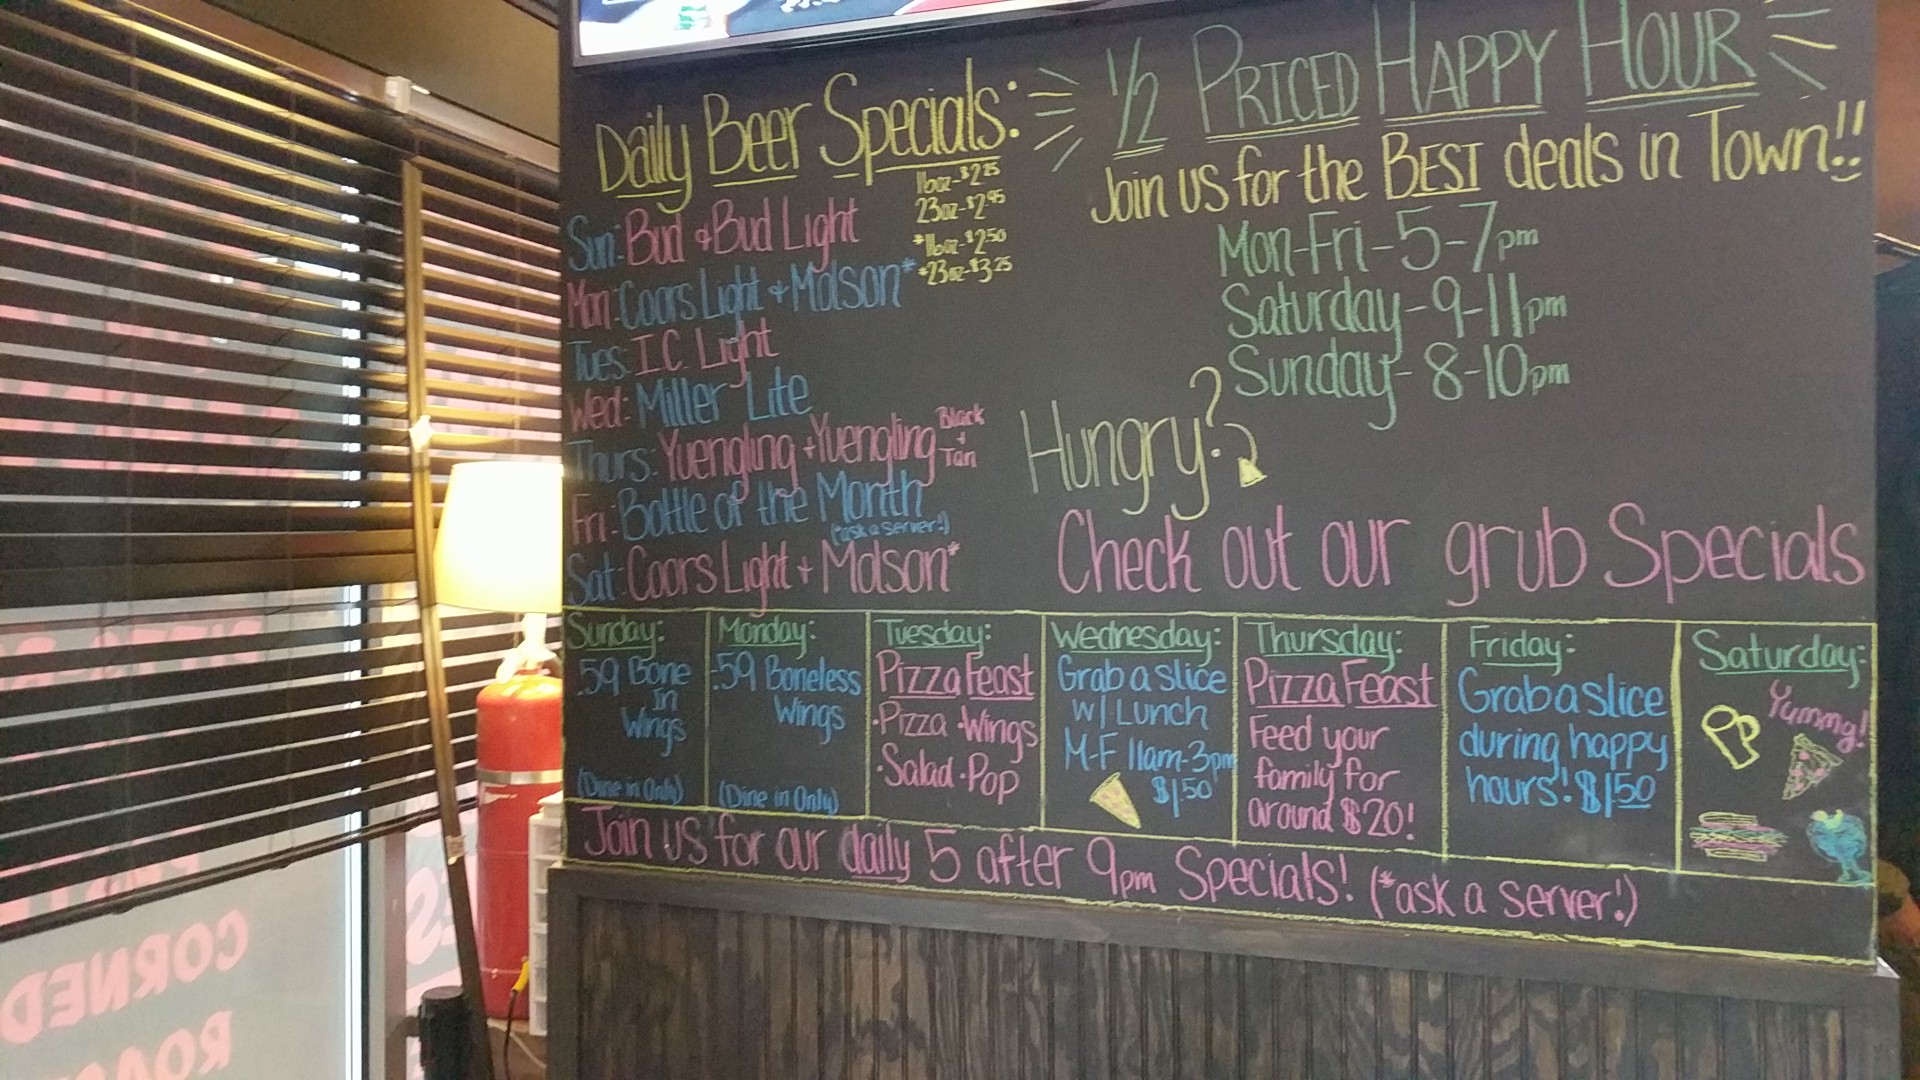 Daily Beer Specials:
16oz-$2.25
23oz-$2.95
*16oz-$2.50
*23oz-$3.25
Sun: Bud + Bud Light
Mon: Coors Light + Molson*
Tues: I.C. Light
Wed: Miller Lite
Thurs: Yuengling + Yuengling Black + Tan
Fri: Bottle of the Month
(*ask a server!)
Sat: Coors Light + Molson*
1/2 PRICED HAPPY HOUR
Join us for the BEST deals in Town!!
Mon-Fri-5-7pm
Saturday-9-11pm
Sunday-8-10pm
Hungry?
Check out our grub Specials
Sunday:
.59 Bone
In
Wings
(Dine in Only)
Monday:
.59 Boneless
Wings
(Dine in Only)
Tuesday:
Pizza Feast
·Pizza ·Wings
·Salad ·Pop
Wednesday:
Grab a slice
w/ Lunch
M-F 11am-3pm
$1.50
Thursday:
Pizza Feast
Feed your
family for
around $20!
Friday:
Grab a slice
during happy
hours! $1.50
Saturday:
Yummy!
Join us for our daily 5 after 9pm Specials! (*ask a server!)
CORNED